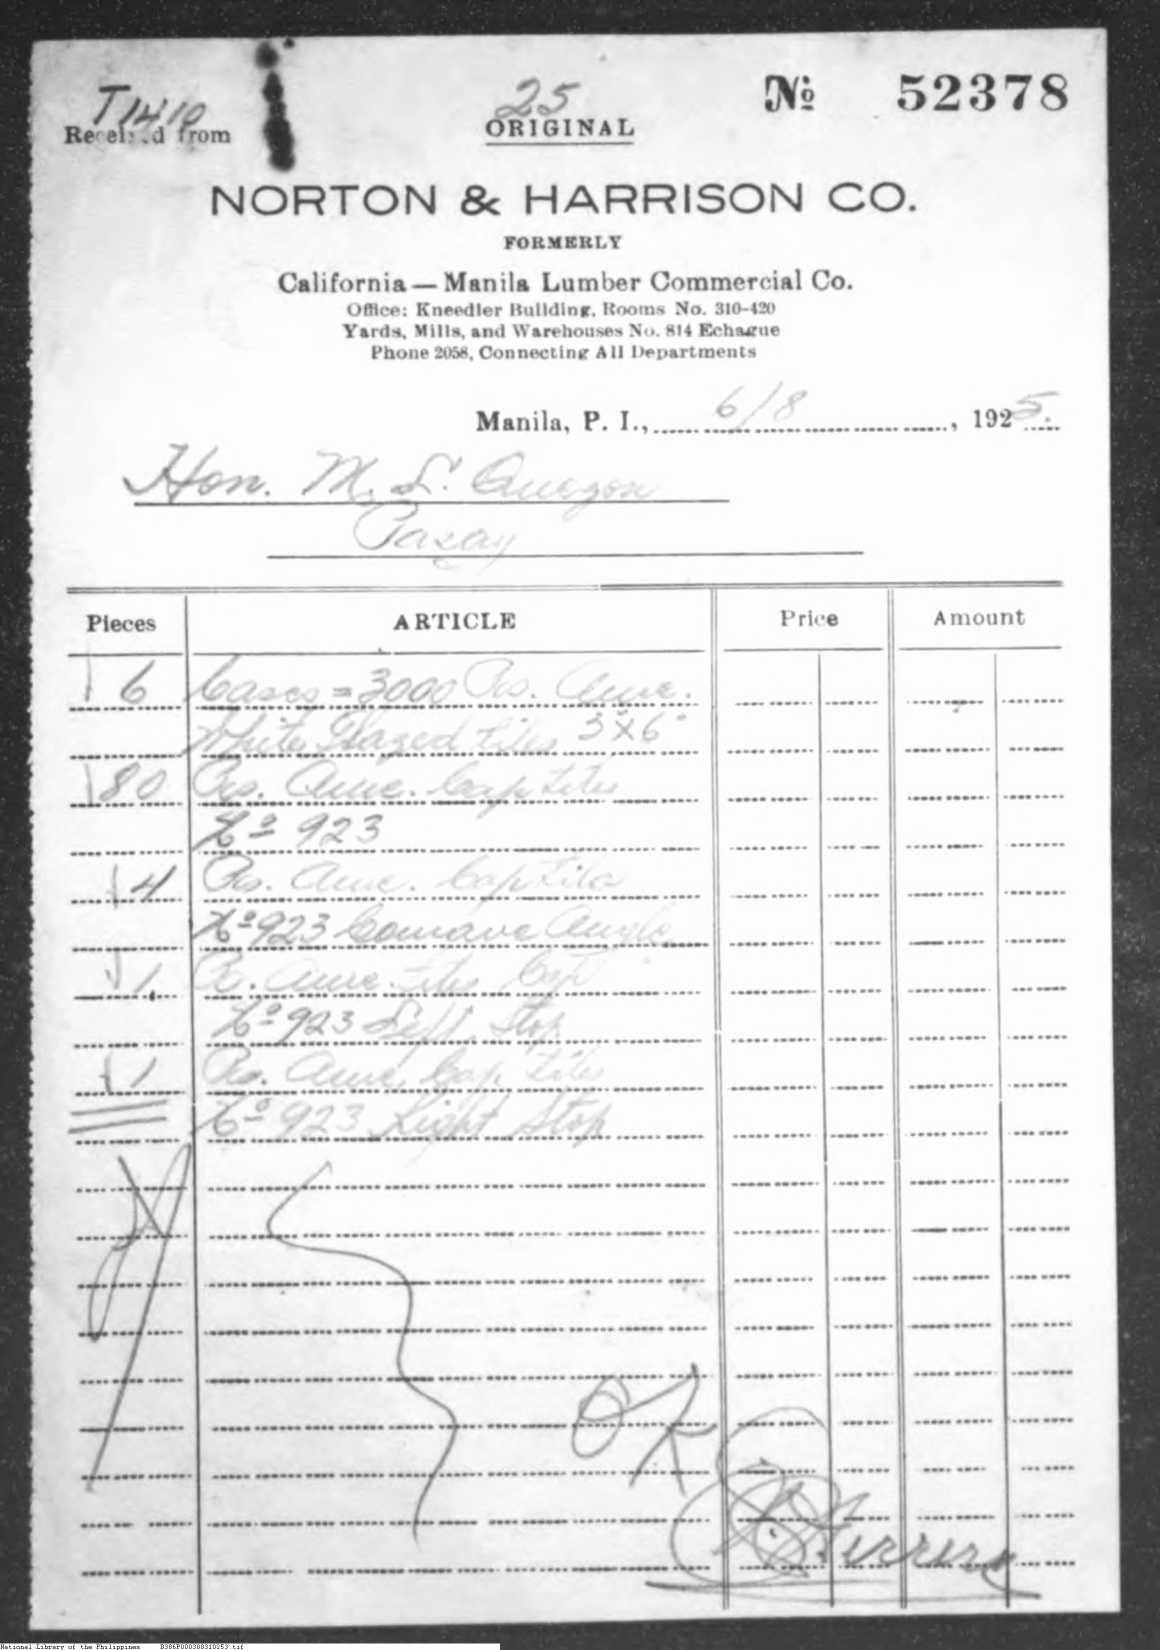 T1410
25
No 52378
Received from
ORIGINAL
NORTON & HARRISON CO.
FORMERLY
California — Manila Lumber Commercial Co.
Office: Kneedler Building, Rooms No. 310-420
Yards, Mills, and Warehouses No. 814 Echague
Phone 2058, Connecting All Departments
Manila, P. I., 6/8, 1925.
Hon. M. L. Quezon
Pasay
Pieces ARTICLE Price Amount
6 Cases = 3000 Pcs. Ame.
White Glazed tiles 3"x6"
80 Pcs. Ame. Cap tiles
No 923
4 Pcs. Ame. Cap tile
No 923 Concave Angle
1 Pc. Ame. tiles Cap
No 923 Left Stop
1 Pc. Ame. Cap tiles
No 923 Right Stop
OK
National Library of the Philippines B386P000300310253.tif